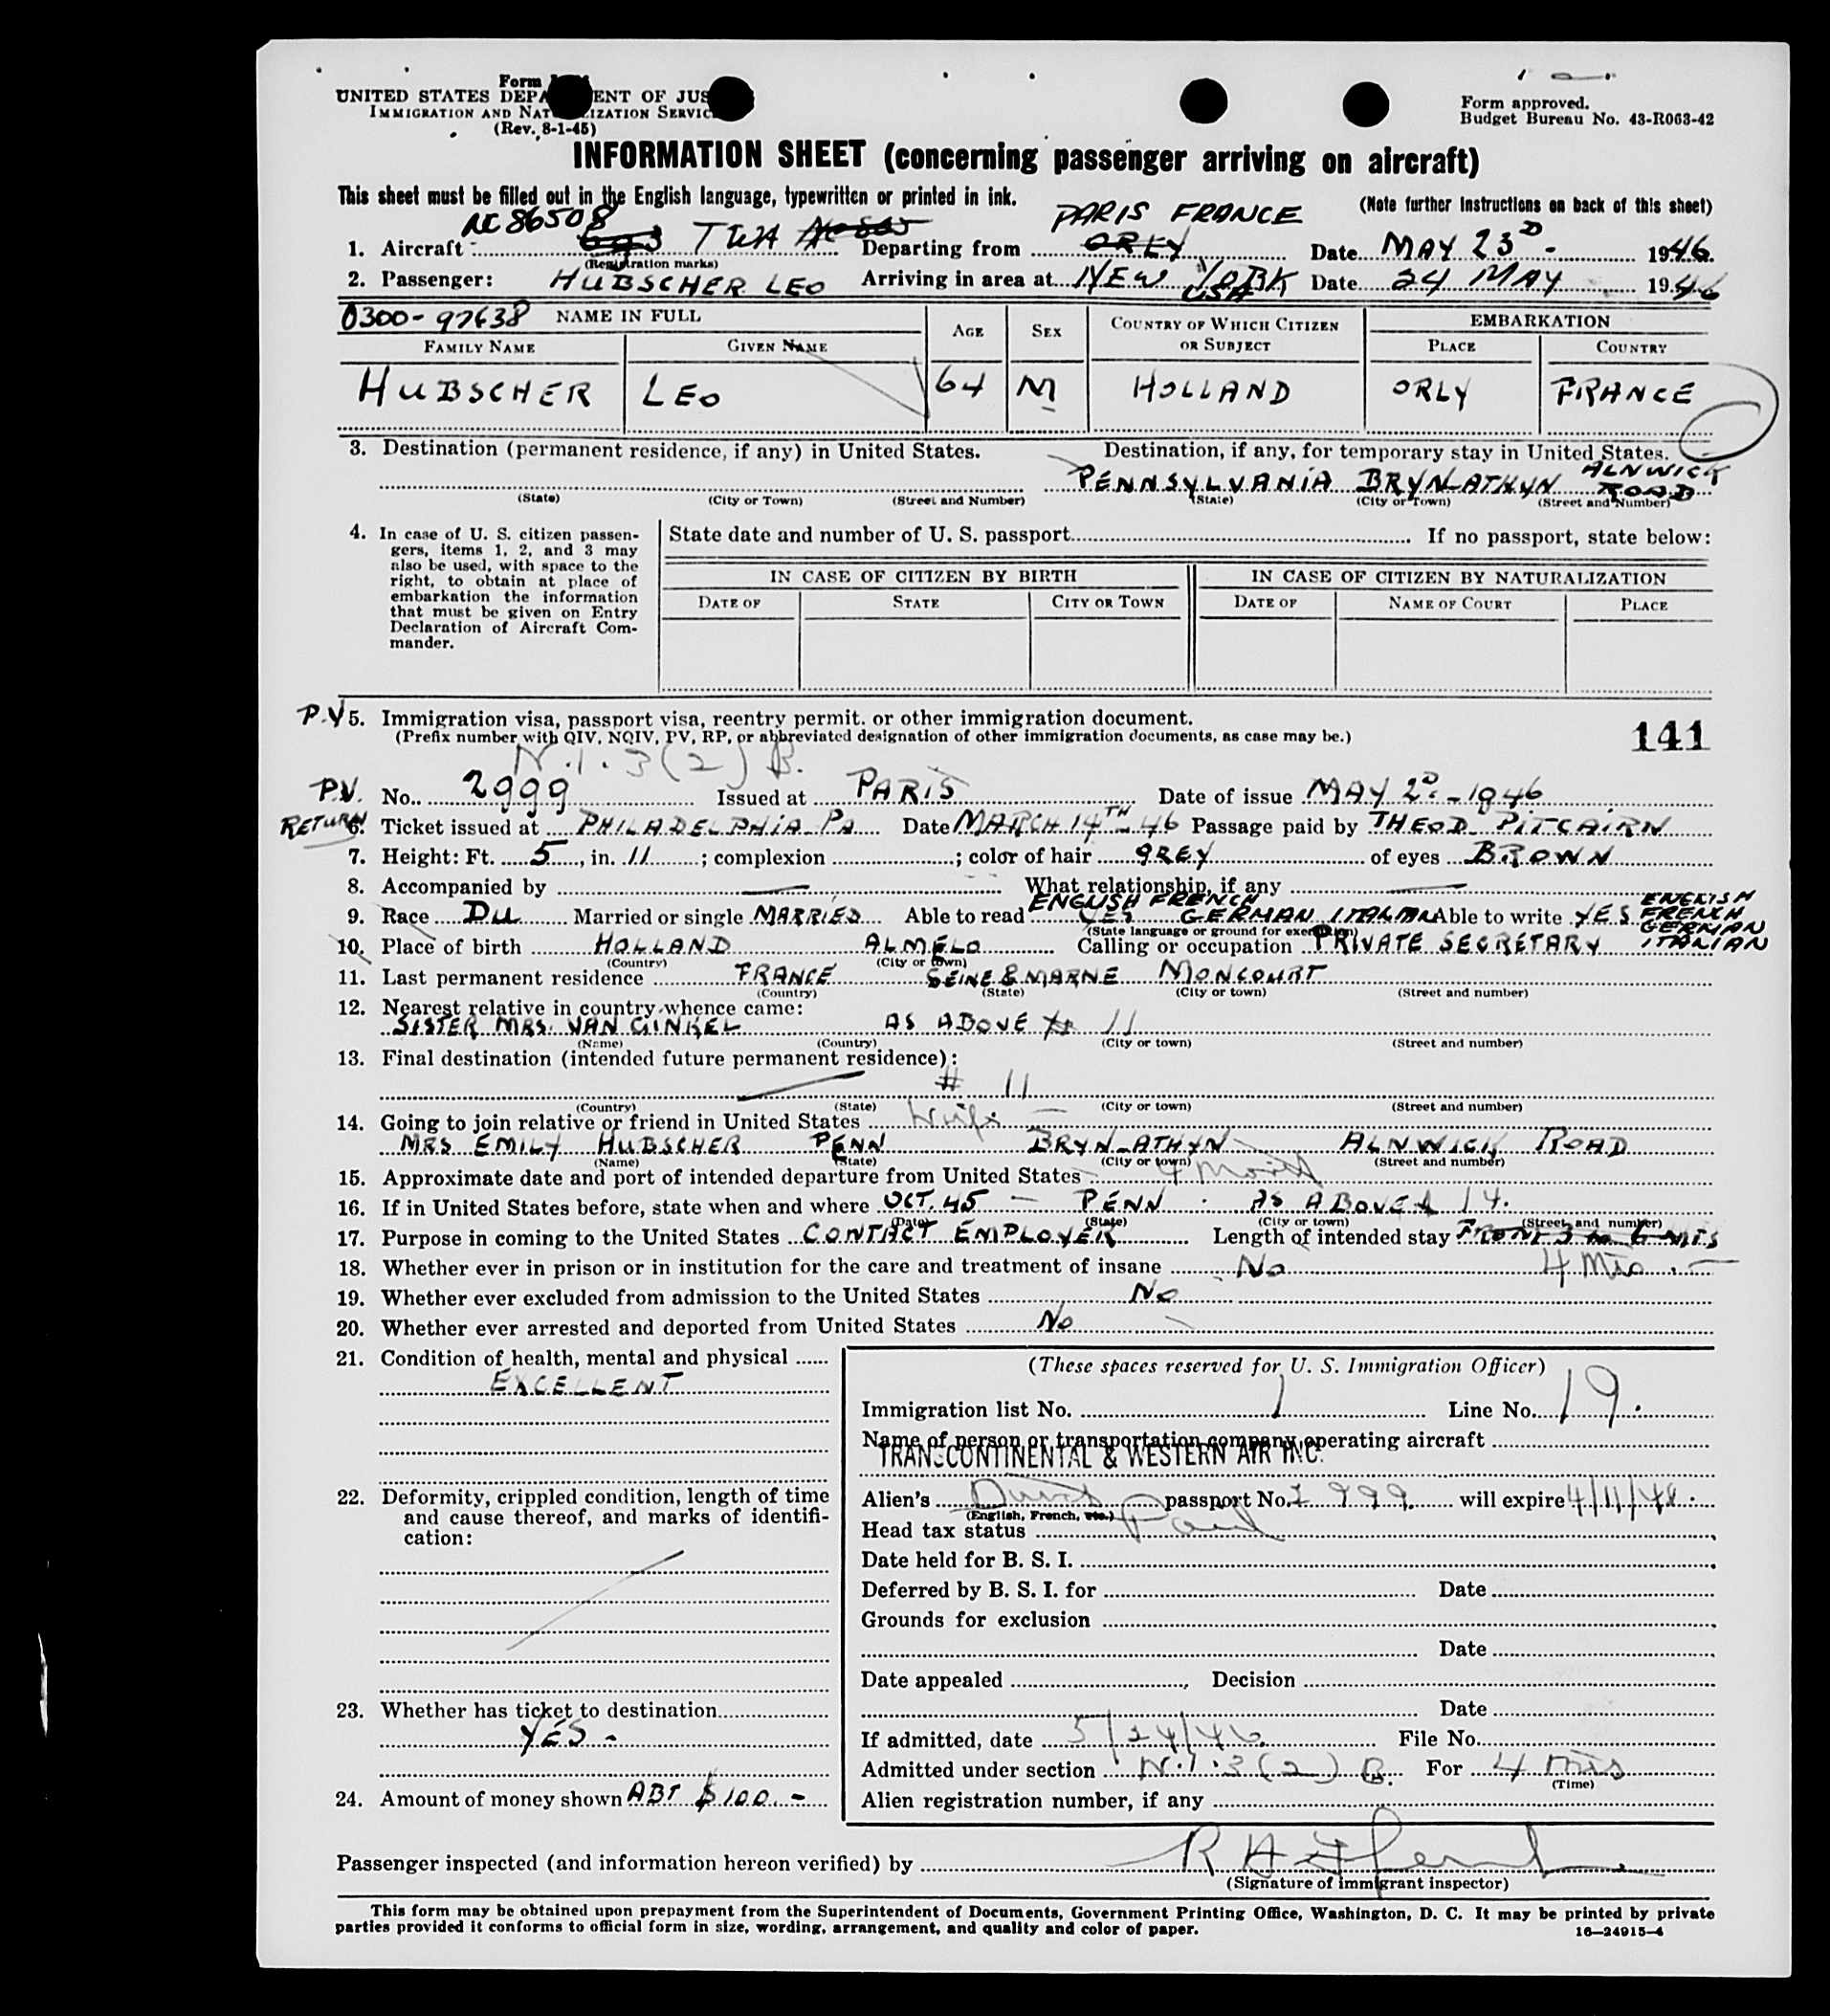 Form
UNITED STATES DEPA ENT OF JUS
IMMIGRATION AND NAT IZATION SERVIC
(Rev. 8-1-45)
Form approved.
Budget Bureau No. 43-R063-42
INFORMATION SHEET (concerning passenger arriving on aircraft)
This sheet must be filled out in the English language, typewritten or printed in ink.
(Note further instructions on back of this sheet)
NC 86508 PARIS FRANCE
1. Aircraft TWA Departing from ORLY Date MAY 23D - 1946.
(Registration marks)
2. Passenger: HUBSCHER LEO Arriving in area at NEW YORK USA Date 24 MAY 1946
0300-97638 NAME IN FULL AGE SEX COUNTRY OF WHICH CITIZEN OR SUBJECT EMBARKATION
FAMILY NAME GIVEN NAME PLACE COUNTRY
HUBSCHER LEO 64 M HOLLAND ORLY FRANCE
3. Destination (permanent residence, if any) in United States. Destination, if any, for temporary stay in United States.
PENNSYLVANIA BRYN-ATHYN ALNWICK ROAD
(State) (City or Town) (Street and Number) (State) (City or Town) (Street and Number)
4. In case of U. S. citizen passengers, items 1, 2, and 3 may also be used, with space to the right, to obtain at place of embarkation the information that must be given on Entry Declaration of Aircraft Commander.
State date and number of U. S. passport If no passport, state below:
IN CASE OF CITIZEN BY BIRTH IN CASE OF CITIZEN BY NATURALIZATION
DATE OF STATE CITY OR TOWN DATE OF NAME OF COURT PLACE
P.V 5. Immigration visa, passport visa, reentry permit. or other immigration document.
(Prefix number with QIV, NQIV, PV, RP, or abbreviated designation of other immigration documents, as case may be.)
141
N.1.3(2)B.
P.V. No. 2999 Issued at PARIS Date of issue MAY 2D - 1946
RETURN 6. Ticket issued at PHILADELPHIA PA Date MARCH 14TH - 46 Passage paid by THEOD PITCAIRN
7. Height: Ft. 5, in. 11; complexion; color of hair GREY of eyes BROWN
8. Accompanied by — What relationship, if any —
9. Race DU Married or single MARRIED Able to read YES ENGLISH FRENCH GERMAN ITALIAN Able to write YES ENGLISH FRENCH GERMAN ITALIAN
(State language or ground for exemption)
10. Place of birth HOLLAND ALMELO Calling or occupation PRIVATE SECRETARY
(Country) (City or town)
11. Last permanent residence FRANCE SEINE & MARNE MONCOURT
(Country) (State) (City or town) (Street and number)
12. Nearest relative in country whence came:
SISTER MRS. VAN GINKEL AS ABOVE # 11
(Name) (Country) (City or town) (Street and number)
13. Final destination (intended future permanent residence):
# 11
(Country) (State) (City or town) (Street and number)
14. Going to join relative or friend in United States Wife —
MRS EMILY HUBSCHER PENN BRYN-ATHYN ALNWICK ROAD
(Name) (State) (City or town) (Street and number)
15. Approximate date and port of intended departure from United States 4
16. If in United States before, state when and where OCT. 45 — PENN. AS ABOVE 14.
(Date) (State) (City or town) (Street and number)
17. Purpose in coming to the United States CONTACT EMPLOYER Length of intended stay FROM 3 to 6 MTS
18. Whether ever in prison or in institution for the care and treatment of insane No 4 Mto. —
19. Whether ever excluded from admission to the United States No
20. Whether ever arrested and deported from United States No
21. Condition of health, mental and physical
EXCELLENT
22. Deformity, crippled condition, length of time and cause thereof, and marks of identification:
23. Whether has ticket to destination
YES -
24. Amount of money shown ABT $100. -
(These spaces reserved for U. S. Immigration Officer)
Immigration list No. 1 Line No. 19.
Name of person or transportation company operating aircraft
TRANSCONTINENTAL & WESTERN AIR INC.
Alien's Dutch passport No. 2999 will expire 4/11/48.
(English, French, etc.)
Head tax status Paid
Date held for B. S. I.
Deferred by B. S. I. for Date
Grounds for exclusion
Date
Date appealed Decision
Date
If admitted, date 5/24/46 File No.
Admitted under section N.1.3(2)B. For 4 mts
(Time)
Alien registration number, if any
Passenger inspected (and information hereon verified) by
(Signature of immigrant inspector)
This form may be obtained upon prepayment from the Superintendent of Documents, Government Printing Office, Washington, D. C. It may be printed by private
parties provided it conforms to official form in size, wording, arrangement, and quality and color of paper.
16—24915-4